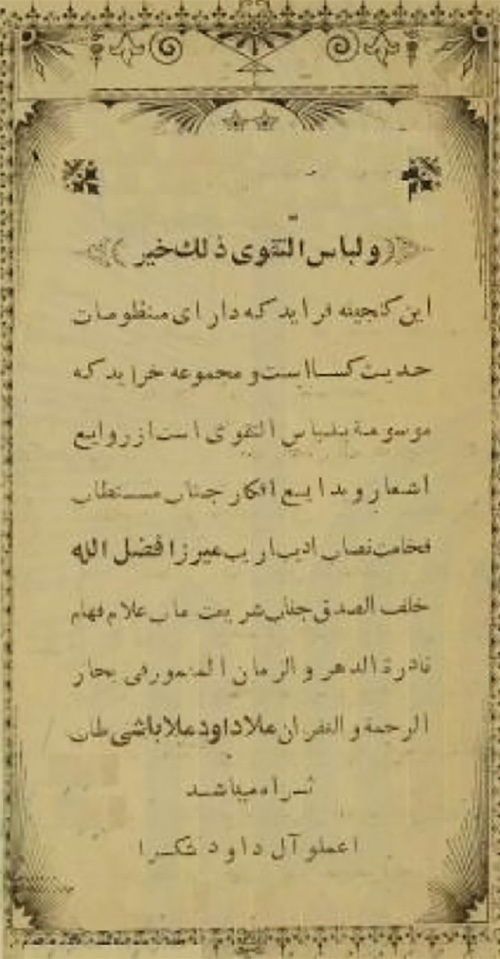 ولباس التقوی ذلك خیر
این کنجینه فراید که دارای منظومات
حدیث کسا است و مجموعه خراید که
موسومة بلباس التقوی است از روایع
اشعار و بدایع افکار جناب مستطاب
فخامت نصاب ادیب اریب میرزا فضل الله
خلف الصدق جناب شریعت ماب علام فهام
نادرة الدهر و الزمان المغمور فی بحار
الرحمة و الغفران ملا داود ملا باشی طاب
ثراه میباشد
اعملو آل داود شکرا